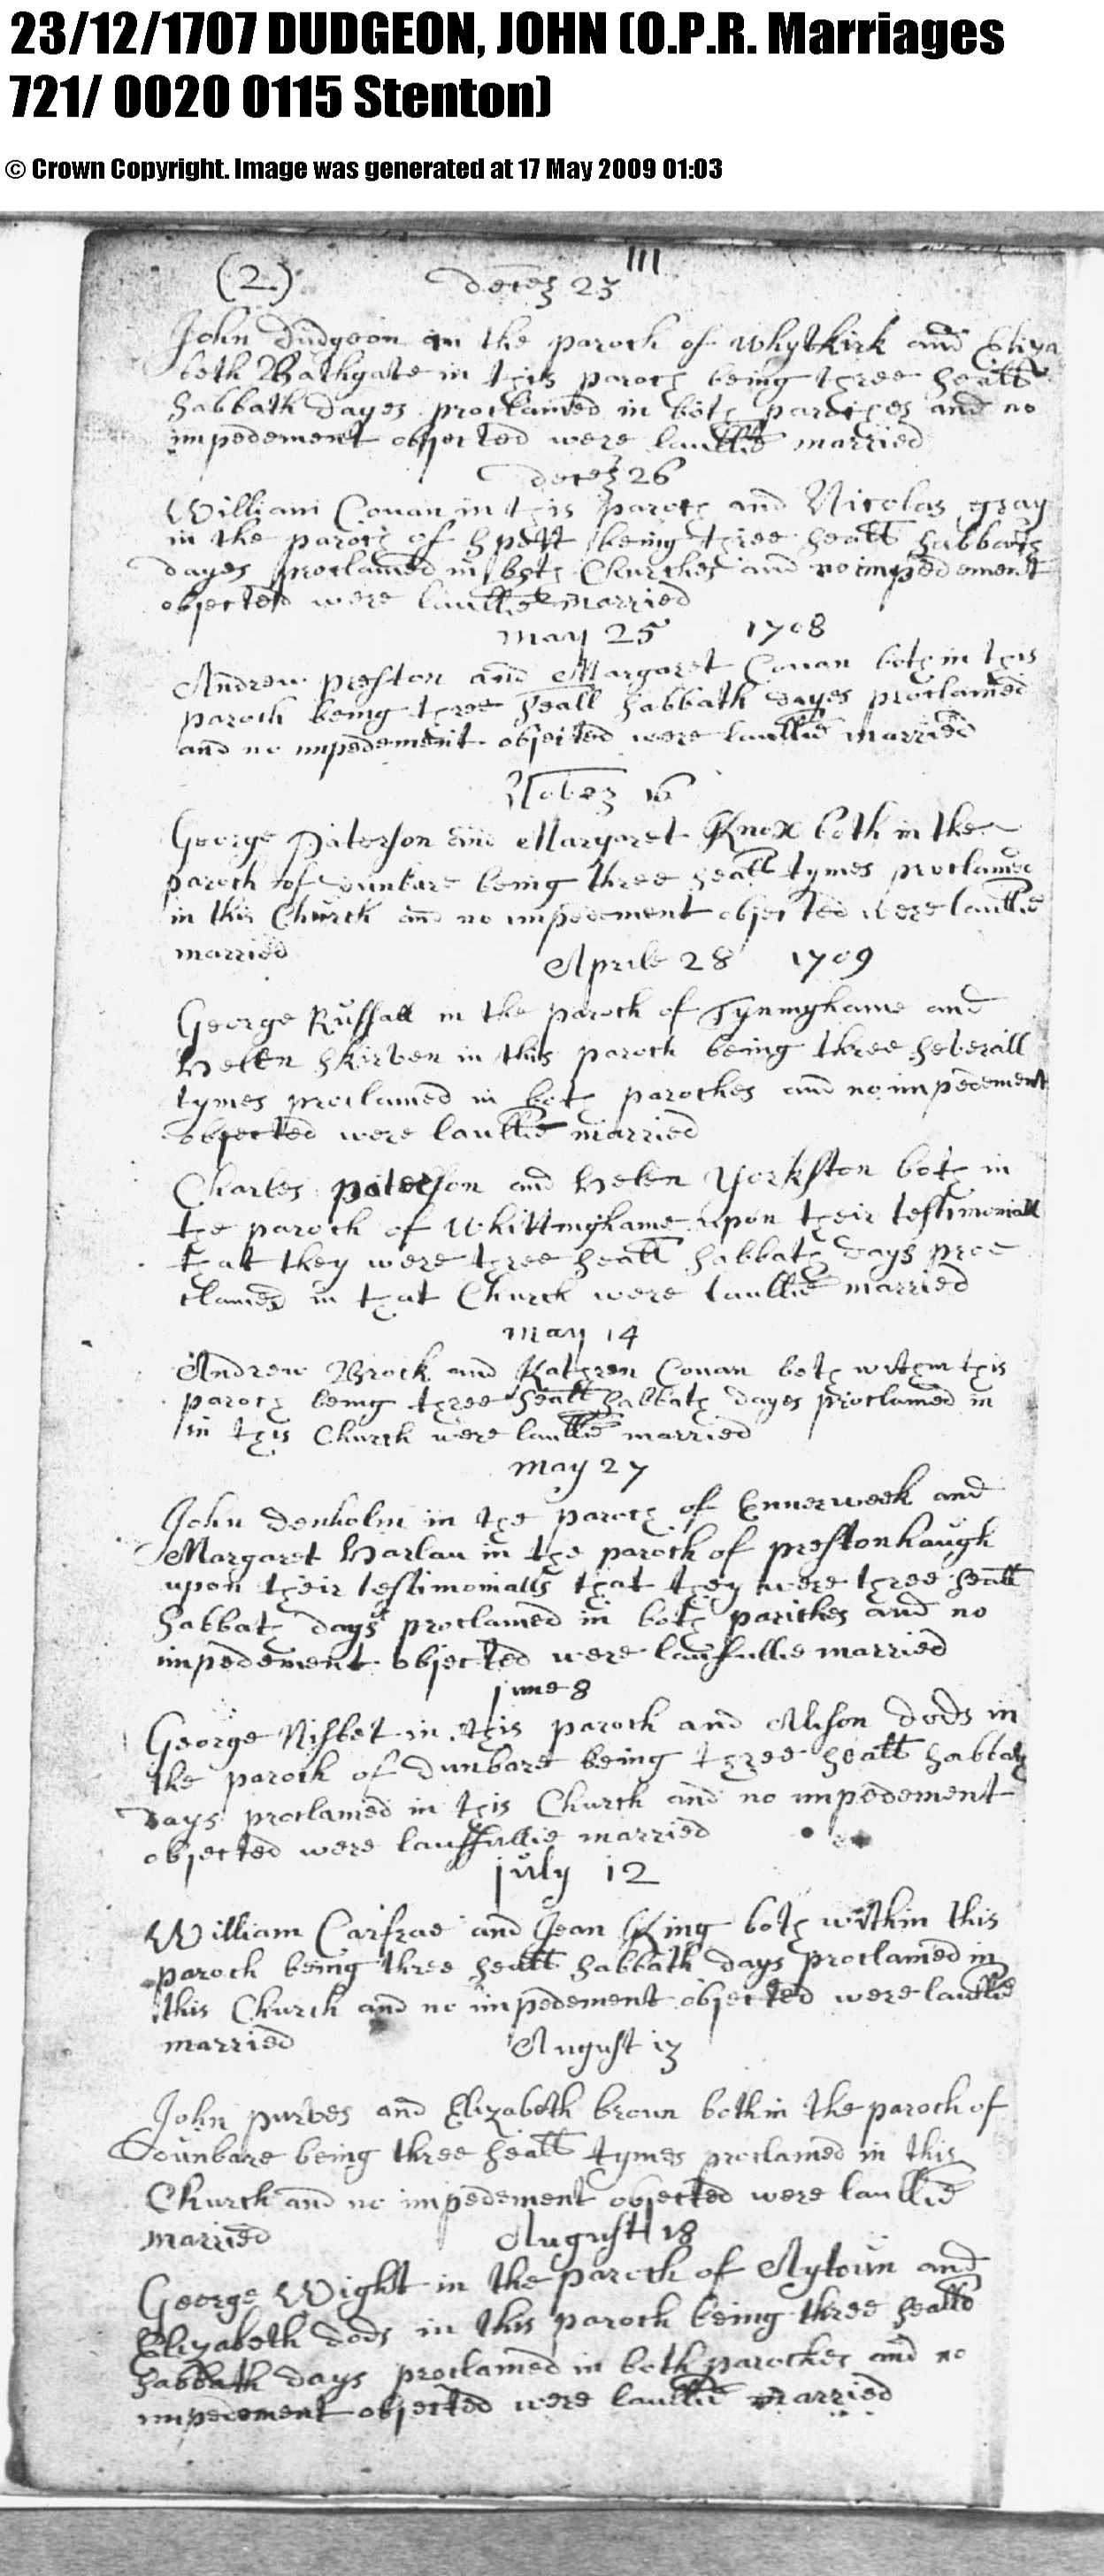 23/12/1707 DUDGEON, JOHN (O.P.R. Marriages
721/ 0020 0115 Stenton)
© Crown Copyright. Image was generated at 17 May 2009 01:03
111
(2)
23
John Dudgeon in the paroch of Whytkirk and Eliza
beth Bathgate in this paroch being three seall
sabbath dayes proclamed in both paroches and no
impedement objected were laullie married
26
William Couan in this paroch and Nicolas gray
in the paroch of spott being three seall sabbath
dayes proclamed in both Churches and no impedement
objected were laullie married
may 25 1708
Andrew preston and Margaret Couan both in this
paroch being three seall sabbath dayes proclamed
and no impedement objected were laullie married
16
George Paterson and Margaret Knox both in the
paroch of dunbare being three seall tymes proclamed
in this Church and no impedement objected were laullie
married
Aprile 28 1709
George Russall in the paroch of Tyninghame and
Helen Skirven in this paroch being three severall
tymes proclamed in bot paroches and no impedement
objected were laullie married
Charles paterson and Helen Yorkston both in
the paroch of Whittinghame upon their testimoniall
that they were three seall sabbath days proc
clamed in that Church were laullie married
may 14
Andrew Brock and Kathren Couan both within this
paroch being three seall sabbath dayes proclamed in
in this Church were laullie married
may 27
John denholm in the paroch of Ennerweek and
Margaret Harlau in the paroch of prestonhaugh
upon their testimonialls that they were three seall
sabbath days proclamed in both parishes and no
impedement objected were laufullie married
june 8
George Nisbet in this paroch and Alison dods in
the paroch of dunbare being three seall sabbath
days proclamed in this Church and no impedement
objected were lauffullie married
july 12
William Carfrae and Jean King both within this
paroch being three seall sabbath days proclamed in
this Church and no impedement objected were laullie
married
August 13
John purves and Elizabeth broun both in the paroch of
Dunbare being three seall tymes proclamed in this
Church and no impedement objected were laullie
married
August 18
George Wight in the paroch of Aytoun and
Elizabeth dods in this paroch being three seall
sabbath days proclamed in both paroches and no
impedement objected were laullie married